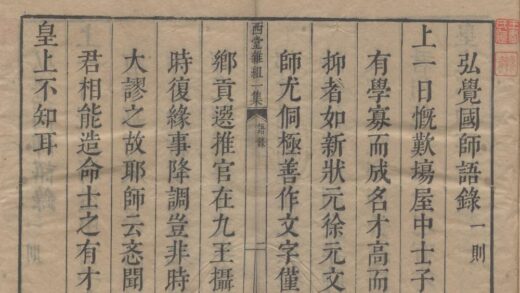 弘覺國師語錄一則
上一日慨歎場屋中士子
有學寡而成名才高而
抑者如新狀元徐元文
師尤侗極善作文字僅
西堂雜組一集 語錄 二
鄉貢選推官在九王攝
時復緣事降調豈非時
大謬之故耶師云忞聞
君相能造命士之有才
皇上不知耳